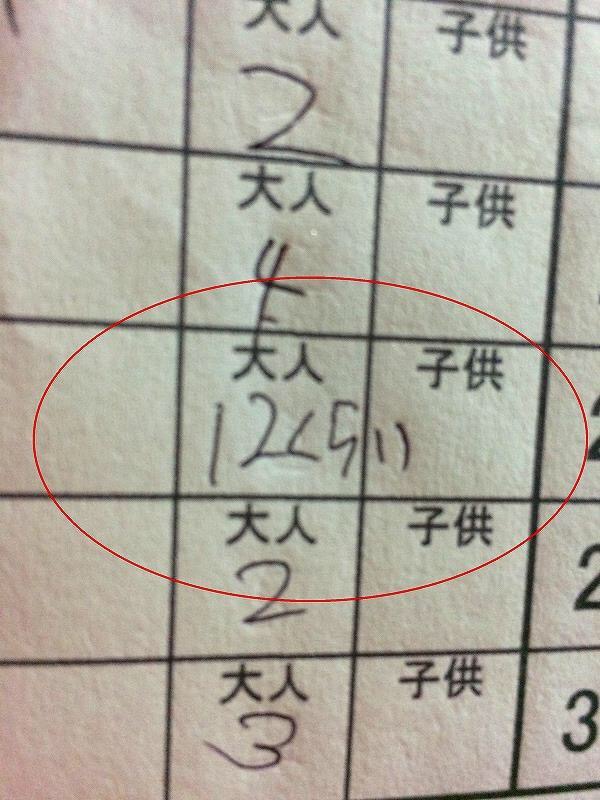 大人 子供
2
大人 子供
4
大人 子供
12くらい
大人 子供
2 2
大人 子供
3 3